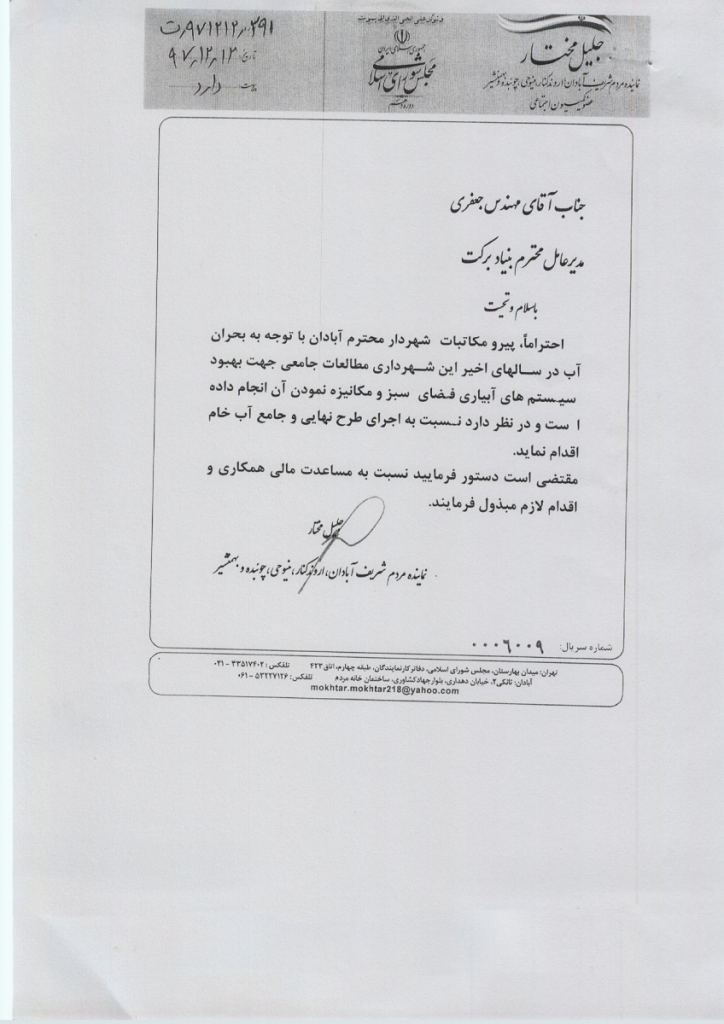 جلیل مختار
نماینده مردم شریف آبادان، اروندکنار، منیوحی، چوئبده و بهمنشیر
عضو کمیسیون اجتماعی
جمهوری اسلامی ایران
مجلس شورای اسلامی
دوره دهم
۹۷۱۲۱۲٫۲۹۱ت
تاریخ: ۹۷٫۱۲٫۱۲
پیوست: دارد
جناب آقای مهندس جعفری
مدیرعامل محترم بنیاد برکت
باسلام و تحیت
احتراماً، پیرو مکاتبات شهردار محترم آبادان با توجه به بحران
آب در سالهای اخیر این شهرداری مطالعات جامعی جهت بهبود
سیستم های آبیاری فضای سبز و مکانیزه نمودن آن انجام داده
ا ست و در نظر دارد نسبت به اجرای طرح نهایی و جامع آب خام
اقدام نماید.
مقتضی است دستور فرمایید نسبت به مساعدت مالی همکاری و
اقدام لازم مبذول فرمایند.
جلیل مختار
نماینده مردم شریف آبادان، اروندکنار، منیوحی، چوئبده و بهمنشیر
شماره سریال: ۰۰۰۶۰۰۹
تهران: میدان بهارستان، مجلس شورای اسلامی، دفاتر کار نمایندگان، طبقه چهارم، اتاق ۴۲۳ تلفکس: ۳۳۵۱۷۴۰۲ - ۰۲۱
آبادان: تانکی۲، خیابان دهداری، بلوار جهاد کشاورزی، ساختمان خانه مردم تلفکس: ۵۳۲۲۷۱۲۶ - ۰۶۱
mokhtar.mokhtar218@yahoo.com